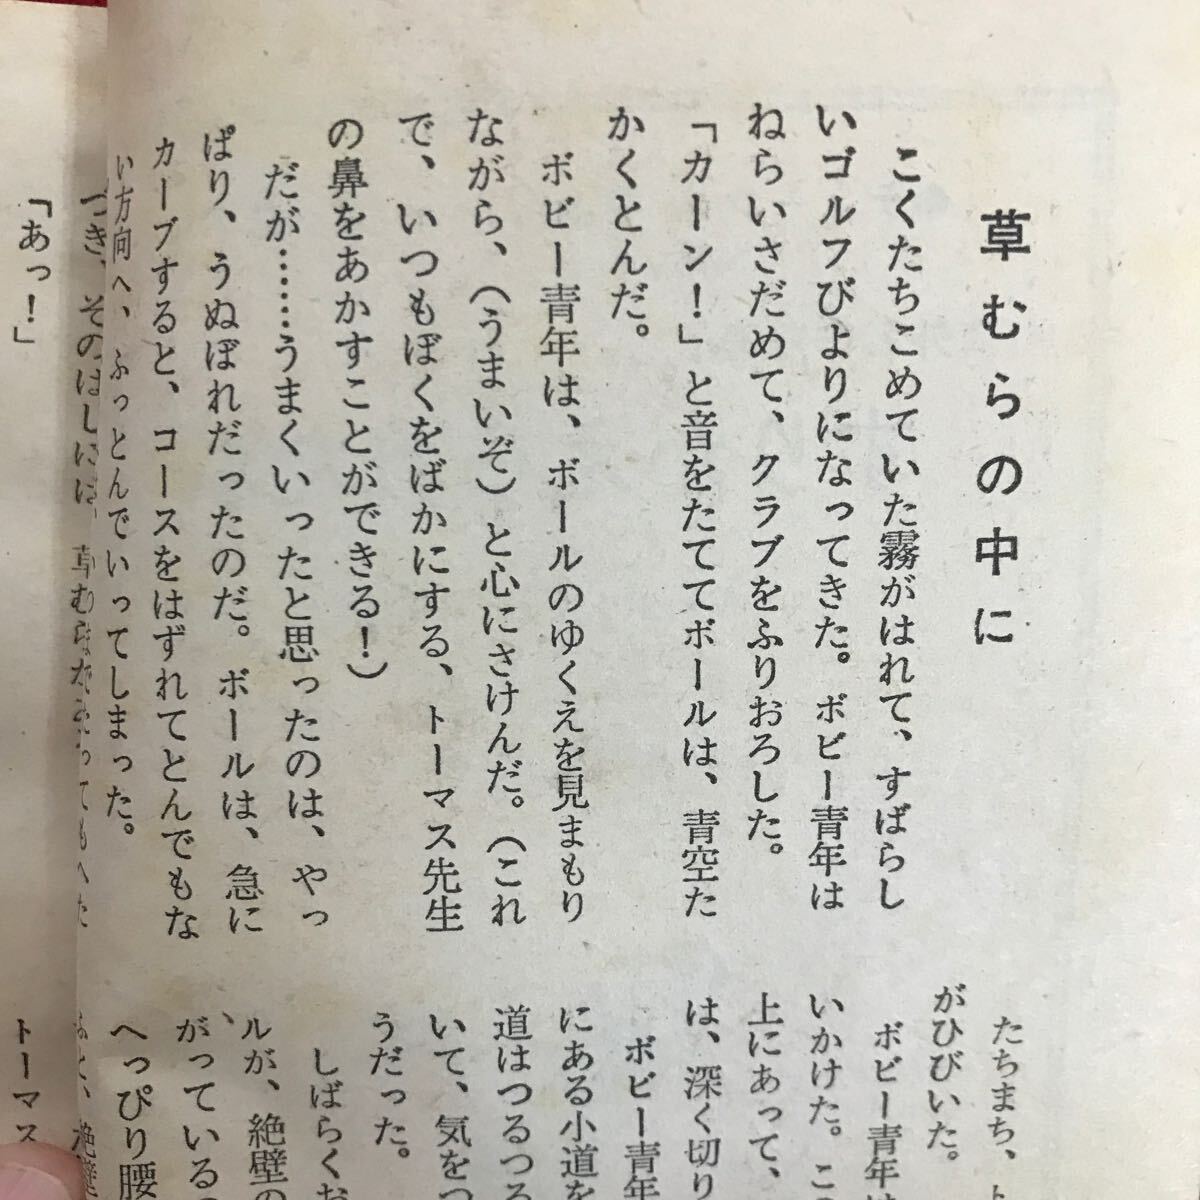 草むらの中に
こくたちこめていた霧がはれて、すばらし
いゴルフびよりになってきた。ボビー青年は
ねらいさだめて、クラブをふりおろした。
「カーン！」と音をたててボールは、青空た
かくとんだ。
ボビー青年は、ボールのゆくえを見まもり
ながら、（うまいぞ）と心にさけんだ。（これ
で、いつもぼくをばかにする、トーマス先生
の鼻をあかすことができる！）
だが……うまくいったと思ったのは、やっ
ぱり、うぬぼれだったのだ。ボールは、急に
カーブすると、コースをはずれてとんでもな
い方向へ、ふっとんでいってしまった。
つき、そのはしには、草むら
「あっ！」
たちまち、
がひびいた。
ボビー青年は
いかけた。この
上にあって、
は、深く切り
ボビー青年
にある小道を
道はつるつる
いて、気をつ
うだった。
しばらくお
ルが、絶壁の
がっている
へっぴり腰
ふと、絶壁
トーマス